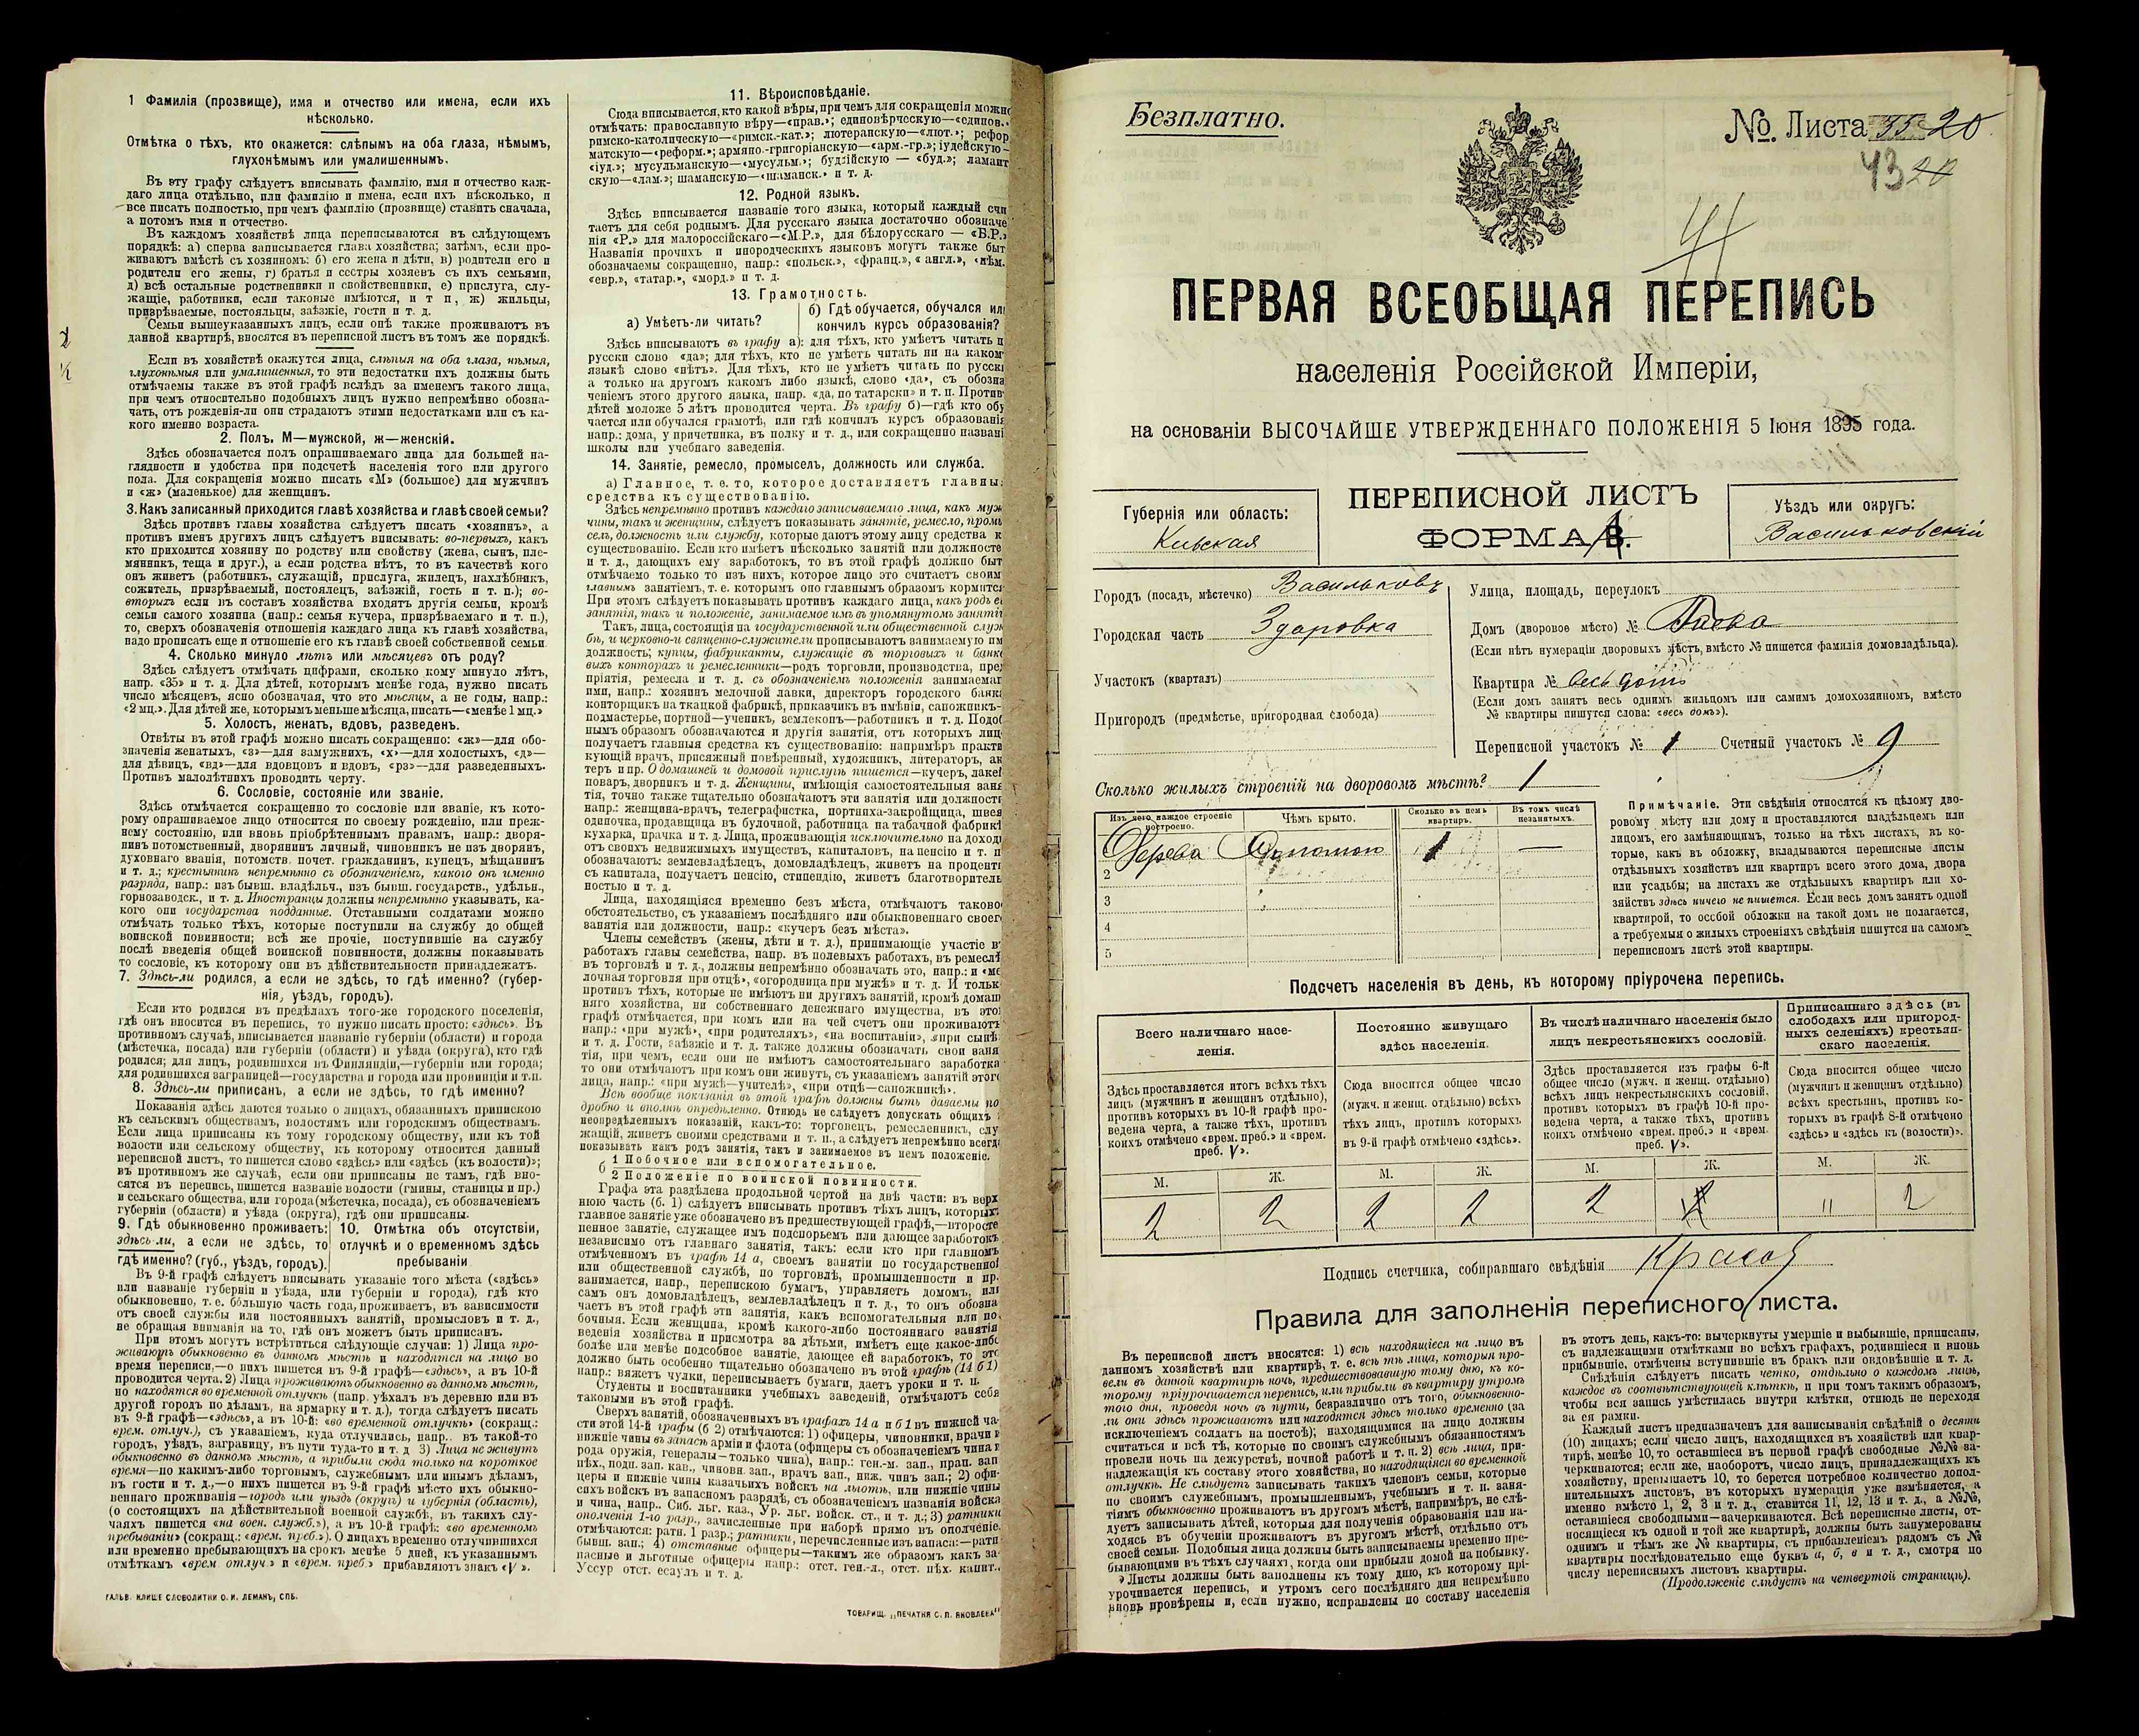 1 Фамилія (прозвище), имя и отчество или имена, если ихъ
нѣсколько.
Отмѣтка о тѣхъ, кто окажется: слѣпымъ на оба глаза, нѣмымъ,
глухонѣмымъ или умалишеннымъ.
Въ эту графу слѣдуетъ вписывать фамилію, имя и отчество каж-
даго лица отдѣльно, или фамилію и имена, если ихъ нѣсколько, и
все писать полностью, при чемъ фамилію (прозвище) ставить сначала,
а потомъ имя и отчество.
Въ каждомъ хозяйствѣ лица переписываются въ слѣдующемъ
порядкѣ: а) сперва записывается глава хозяйства; затѣмъ, если про-
живаютъ вмѣстѣ съ хозяиномъ: б) его жена и дѣти, в) родители его и
родители его жены, г) братья и сестры хозяевъ съ ихъ семьями,
д) всѣ остальные родственники и свойственники, е) прислуга, слу-
жащіе, работники, если таковые имѣются, и т п, ж) жильцы,
призрѣваемые, постояльцы, заѣзжіе, гости и т. д.
Семьи вышеуказанныхъ лицъ, если онѣ также проживаютъ въ
данной квартирѣ, вносятся въ переписной листъ въ томъ же порядкѣ.
Если въ хозяйствѣ окажутся лица, слѣпыя на оба глаза, нѣмыя,
глухонѣмыя или умалишенныя, то эти недостатки ихъ должны быть
отмѣчаемы также въ этой графѣ вслѣдъ за именемъ такого лица,
при чемъ относительно подобныхъ лицъ нужно непремѣнно обозна-
чать, отъ рожденія-ли они страдаютъ этими недостатками или съ ка-
кого именно возраста.
2. Полъ. М—мужской, ж—женскій.
Здѣсь обозначается полъ опрашиваемаго лица для большей на-
глядности и удобства при подсчетѣ населенія того или другого
пола. Для сокращенія можно писать «М» (большое) для мужчинъ
и «ж» (маленькое) для женщинъ.
3. Какъ записанный приходится главѣ хозяйства и главѣ своей семьи?
Здѣсь противъ главы хозяйства слѣдуетъ писать «хозяинъ», а
противъ именъ другихъ лицъ слѣдуетъ вписывать: во-первыхъ, какъ
кто приходится хозяину по родству или свойству (жена, сынъ, пле-
мянникъ, теща и друг.), а если родства нѣтъ, то въ качествѣ кого
онъ живетъ (работникъ, служащій, прислуга, жилецъ, нахлѣбникъ,
сожитель, призрѣваемый, постоялецъ, заѣзжій, гость и т. п.); во-
вторыхъ если въ составъ хозяйства входятъ другія семьи, кромѣ
семьи самого хозяина (напр.: семья кучера, призрѣваемаго и т. п.),
то, сверхъ обозначенія отношенія каждаго лица къ главѣ хозяйства,
надо прописать еще и отношеніе его къ главѣ своей собственной семьи.
4. Сколько минуло лѣтъ или мѣсяцевъ отъ роду?
Здѣсь слѣдуетъ отмѣчать цифрами, сколько кому минуло лѣтъ,
напр. «35» и т. д. Для дѣтей, которымъ менѣе года, нужно писать
число мѣсяцевъ, ясно обозначая, что это мѣсяцы, а не годы, напр.:
«2 мц.». Для дѣтей же, которымъ меньше мѣсяца, писать—«менѣе 1 мц.»
5. Холостъ, женатъ, вдовъ, разведенъ.
Отвѣты въ этой графѣ можно писать сокращенно: «ж»—для обо-
значенія женатыхъ, «з»—для замужнихъ, «х»—для холостыхъ, «д»—
для дѣвицъ, «вд»—для вдовцовъ и вдовъ, «рз»—для разведенныхъ.
Противъ малолѣтнихъ проводить черту.
6. Сословіе, состояніе или званіе.
Здѣсь отмѣчается сокращенно то сословіе или званіе, къ кото-
рому опрашиваемое лицо относится по своему рожденію, или преж-
нему состоянію, или вновь пріобрѣтеннымъ правамъ, напр.: дворя-
нинъ потомственный, дворянинъ личный, чиновникъ не изъ дворянъ,
духовнаго званія, потомств. почет. гражданинъ, купецъ, мѣщанинъ
и т. д.; крестьянинъ непремѣнно съ обозначеніемъ, какого онъ именно
разряда, напр.: изъ бывш. владѣльч., изъ бывш. государств., удѣльн.,
горнозаводск., и т. д. Иностранцы должны непремѣнно указывать, ка-
кого они государства подданные. Отставными солдатами можно
отмѣчать только тѣхъ, которые поступили на службу до общей
воинской повинности; всѣ же прочіе, поступившіе на службу
послѣ введенія общей воинской повинности, должны показывать
то сословіе, къ которому они въ дѣйствительности принадлежатъ.
7. Здѣсь-ли родился, а если не здѣсь, то гдѣ именно? (губер-
нія, уѣздъ, городъ).
Если кто родился въ предѣлахъ того-же городского поселенія,
гдѣ онъ вносится въ перепись, то нужно писать просто: «здѣсь». Въ
противномъ случаѣ, вписывается названіе губерніи (области) и города
(мѣстечка, посада) или губерніи (области) и уѣзда (округа), гдѣ кто
родился; для лицъ, родившихся въ Финляндіи,—губерніи или города;
для родившихся заграницей—государства и города или провинціи и т.п.
8. Здѣсь-ли приписанъ, а если не здѣсь, то гдѣ именно?
Показанія здѣсь даются только о лицахъ, обязанныхъ припискою
къ сельскимъ обществамъ, волостямъ или городскимъ обществамъ.
Если лица приписаны къ тому городскому обществу, или къ той
волости или сельскому обществу, къ которому относится данный
переписной листъ, то пишется слово «здѣсь» или «здѣсь (къ волости)»;
въ противномъ же случаѣ, если они приписаны не тамъ, гдѣ вно-
сятся въ перепись, пишется названіе волости (гмины, станицы и пр.)
и сельскаго общества, или города (мѣстечка, посада), съ обозначеніемъ
губерніи (области) и уѣзда (округа), гдѣ они приписаны.
9. Гдѣ обыкновенно проживаетъ:
здѣсь-ли, а если не здѣсь, то
гдѣ именно? (губ., уѣздъ, городъ).
10. Отмѣтка объ отсутствіи,
отлучкѣ и о временномъ здѣсь
пребываніи
Въ 9-й графѣ слѣдуетъ вписывать указаніе того мѣста («здѣсь»
или названіе губерніи и уѣзда, или губерніи и города), гдѣ кто
обыкновенно, т. е. бо́льшую часть года, проживаетъ, въ зависимости
отъ своей службы или постоянныхъ занятій, промысловъ и т. д.,
не обращая вниманія на то, гдѣ онъ можетъ быть приписанъ.
При этомъ могутъ встрѣтиться слѣдующіе случаи: 1) Лица про-
живаютъ обыкновенно въ данномъ мѣстѣ и находятся на лицо во
время переписи,—о нихъ пишется въ 9-й графѣ—«здѣсь», а въ 10-й
проводится черта. 2) Лица проживаютъ обыкновенно въ данномъ мѣстѣ,
но находятся во временной отлучкѣ (напр. уѣхалъ въ деревню или въ
другой городъ по дѣламъ, на ярмарку и т. д.), тогда слѣдуетъ писать
въ 9-й графѣ—«здѣсь», а въ 10-й: «во временной отлучкѣ» (сокращ.:
врем. отлуч.), съ указаніемъ, куда отлучились, напр.. въ такой-то
городъ, уѣздъ, заграницу, въ пути туда-то и т. д 3) Лица не живутъ
обыкновенно въ данномъ мѣстѣ, а прибыли сюда только на короткое
время—по какимъ-либо торговымъ, служебнымъ или инымъ дѣламъ,
въ гости и т. д.,—о нихъ пишется въ 9-й графѣ мѣсто ихъ обыкно-
веннаго проживанія—городъ или уѣздъ (округъ) и губернія (область),
(о состоящихъ на дѣйствительной военной службѣ, въ такихъ слу-
чаяхъ пишется «на воен. службѣ»), а въ 10-й графѣ: «во временномъ
пребываніи» (сокращ.: «врем. преб.»). О лицахъ временно отлучившихся
или временно пребывающихъ на срокъ менѣе 5 дней, къ указаннымъ
отмѣткамъ «врем. отлуч.» и «врем. преб.» прибавляютъ знакъ «V».
ГАЛЬВ. КЛИШЕ СЛОВОЛИТНИ О. И. ЛЕМАНЪ, СПБ.
11. Вѣроисповѣданіе.
Сюда вписывается, кто какой вѣры, при чемъ для сокращенія можн
отмѣчать: православную вѣру—«прав.»; единовѣрческую—«единов.»
римско-католическую—«римск.-кат.»; лютеранскую—«лют.»; рефор
матскую—«реформ.»; армяно.-григоріанскую—«арм.-гр.»; іудейскую—
«іуд.»; мусульманскую—«мусульм.»; буддійскую — «буд.»; ламаит
скую—«лам.»; шаманскую—«шаманск.» и т. д.
12. Родной языкъ.
Здѣсь вписывается названіе того языка, который каждый счи
таетъ для себя роднымъ. Для русскаго языка достаточно обозначе
нія «Р.» для малороссійскаго—«М.Р.», для бѣлорусскаго — «Б.Р.»
Названія прочихъ и инородческихъ языковъ могутъ также быт
обозначаемы сокращенно, напр.: «польск.», «франц.», « англ.», «нѣм.
«евр.», «татар.», «морд.» и т. д.
13. Грамотность.
а) Умѣетъ-ли читать?
б) Гдѣ обучается, обучался ил
кончилъ курсъ образованія?
Здѣсь вписываютъ въ графу а): для тѣхъ, кто умѣетъ читать п
русски слово «да»; для тѣхъ, кто не умѣетъ читать ни на каком
языкѣ слово «нѣтъ». Для тѣхъ, кто не умѣетъ читать по русск
а только на другомъ какомъ либо языкѣ, слово «да», съ обозна
ченіемъ этого другого языка, напр. «да, по татарски» и т. п. Против
дѣтей моложе 5 лѣтъ проводится черта. Въ графу б)—гдѣ кто обу
чается или обучался грамотѣ, или гдѣ кончилъ курсъ образованія
напр.: дома, у причетника, въ полку и т. д., или сокращенно назван
школы или учебнаго заведенія.
14. Занятіе, ремесло, промыселъ, должность или служба.
а) Главное, т. е. то, которое доставляетъ главны
средства къ существованію.
Здѣсь непремѣнно противъ каждаго записываемаго лица, какъ муж
чины, такъ и женщины, слѣдуетъ показывать занятіе, ремесло, промы
селъ, должность или службу, которые даютъ этому лицу средства к
существованію. Если кто имѣетъ нѣсколько занятій или должносте
и т. д., дающихъ ему заработокъ, то въ этой графѣ должно быт
отмѣчаемо только то изъ нихъ, которое лицо это считаетъ своим
главнымъ занятіемъ, т. е. которымъ оно главнымъ образомъ кормится
При этомъ слѣдуетъ показывать противъ каждаго лица, какъ родъ е
занятія, такъ и положеніе, занимаемое имъ въ упомянутомъ заняті
Такъ, лица, состоящія на государственной или общественной служ
бѣ, и церковно-и священно-служители прописываютъ занимаемую им
должность; купцы, фабриканты, служащіе въ торговыхъ и банко
выхъ конторахъ и ремесленники—родъ торговли, производства, пред
пріятія, ремесла и т. д. съ обозначеніемъ положенія занимаемаг
ими, напр.: хозяинъ мелочной лавки, директоръ городского банка
конторщикъ на ткацкой фабрикѣ, приказчикъ въ имѣніи, сапожникъ-
подмастерье, портной—ученикъ, землекопъ—работникъ и т. д. Подоб
нымъ образомъ обозначаются и другія занятія, отъ которыхъ лиц
получаетъ главныя средства къ существованію: напримѣръ практи
кующій врачъ, присяжный повѣренный, художникъ, литераторъ, ак
теръ и пр. О домашней и домовой прислугѣ пишется—кучеръ, лаке
поваръ, дворникъ и т. д. Женщины, имѣющія самостоятельныя заня
тія, точно также тщательно обозначаютъ эти занятія или должност
напр.: женщина-врачъ, телеграфистка, портниха-закройщица, швея
одиночка, продавщица въ булочной, работница на табачной фабрикѣ
кухарка, прачка и т. д. Лица, проживающія исключительно на доход
отъ своихъ недвижимыхъ имуществъ, капиталовъ, на пенсію и т. п
обозначаютъ: землевладѣлецъ, домовладѣлецъ, живетъ на процент
съ капитала, получаетъ пенсію, стипендію, живетъ благотворитель
ностью и т. д.
Лица, находящіяся временно безъ мѣста, отмѣчаютъ таково
обстоятельство, съ указаніемъ послѣдняго или обыкновеннаго своег
занятія или должности, напр.: «кучеръ безъ мѣста».
Члены семействъ (жены, дѣти и т. д.), принимающіе участіе в
работахъ главы семейства, напр. въ полевыхъ работахъ, въ ремеслѣ
въ торговлѣ и т. д., должны непремѣнно обозначать это, напр.: и «ме
лочная торговля при отцѣ», «огородница при мужѣ» и т. д. И тольк
противъ тѣхъ, которые не имѣютъ ни другихъ занятій, кромѣ домаш
няго хозяйства, ни собственнаго денежнаго имущества, въ это
графѣ отмѣчается, при комъ или на чей счетъ они проживаютъ
напр.: «при мужѣ», «при родителяхъ», «на воспитаніи», «при сынѣ
и т. д. Гости, заѣзжіе и т. д. также должны обозначать свои заня
тія, при чемъ, если они не имѣютъ самостоятельнаго заработка
то они отмѣчаютъ при комъ они живутъ, съ указаніемъ занятій этого
лица, напр.: «при мужѣ—учителѣ», «при отцѣ—сапожникѣ».
Всѣ вообще показанія въ этой графѣ должны быть даваемы по
дробно и вполнѣ опредѣленно. Отнюдь не слѣдуетъ допускать общихъ
неопредѣленныхъ показаній, какъ-то: торговецъ, ремесленникъ, слу
жащій, живетъ своими средствами и т. п., а слѣдуетъ непремѣнно всегд
показывать какъ родъ занятія, такъ и занимаемое въ немъ положеніе.
б 1 Побочное или вспомогательное.
2 Положеніе по воинской повинности.
Графа эта раздѣлена продольной чертой на двѣ части: въ верх
нюю часть (б. 1) слѣдуетъ вписывать противъ тѣхъ лицъ, которых
главное занятіе уже обозначено въ предшествующей графѣ,—второсте
пенное занятіе, служащее имъ подспорьемъ или дающее заработокъ
независимо отъ главнаго занятія, такъ: если кто при главномъ
отмѣченномъ въ графѣ 14 а, своемъ занятіи по государственной
или общественной службѣ, по торговлѣ, промышленности и пр.
занимается, напр., перепискою бумагъ, управляетъ домомъ, или
самъ онъ домовладѣлецъ, землевладѣлецъ и т. д., то онъ обозна
чаетъ въ этой графѣ эти занятія, какъ вспомогательныя или по-
бочныя. Если женщина, кромѣ какого-либо постояннаго занятія
веденія хозяйства и присмотра за дѣтьми, имѣетъ еще какое-либо
болѣе или менѣе подсобное занятіе, дающее ей заработокъ, то это
должно быть особенно тщательно обозначено въ этой графѣ (14 б 1)
напр.: вяжетъ чулки, переписываетъ бумаги, даетъ уроки и т. п.
Студенты и воспитанники учебныхъ заведеній, отмѣчаютъ себя
таковыми въ этой графѣ.
Сверхъ занятій, обозначенныхъ въ графахъ 14 а и б 1 въ нижней ча-
сти этой 14-й графы (б 2) отмѣчаются: 1) офицеры, чиновники, врачи и
нижніе чины въ запасѣ арміи и флота (офицеры съ обозначеніемъ чина и
рода оружія, генералы—только чина), напр.: ген-м. зап., прап. зап
пѣх., подп. зап. кав., чиновн. зап., врачъ зап., ниж. чинъ зап.; 2) офи-
церы и нижніе чины казачьихъ войскъ на льготѣ, или нижніе чины
сихъ войскъ въ запасномъ разрядѣ, съ обозначеніемъ названія войска
и чина, напр. Сиб. льг. каз., Ур. льг. войск. ст., и т. д.; 3) ратники
ополченія 1-го разр., зачисленные при наборѣ прямо въ ополченіе,
отмѣчаются: ратн. 1 разр.; ратники, перечисленные изъ запаса:—ратн
бывш. зап.; 4) отставные офицеры—такимъ же образомъ какъ за-
пасные и льготные офицеры напр.: отст. ген.-л., отст. пѣх. капит.,
Уссур отст. есаулъ и т. д.
ТОВАРИЩ. „ПЕЧАТНЯ С. П. ЯКОВЛЕВА“
Безплатно.
№. Листа 20
43 20
ПЕРВАЯ ВСЕОБЩАЯ ПЕРЕПИСЬ
населенія Россійской Имперіи,
на основаніи ВЫСОЧАЙШЕ УТВЕРЖДЕННАГО ПОЛОЖЕНІЯ 5 Іюня 1895 года.
Губернія или область:
Кіевская
ПЕРЕПИСНОЙ ЛИСТЪ
ФОРМА В.
Уѣздъ или округъ:
Васильковскій
Городъ (посадъ, мѣстечко) Васильковъ
Городская часть Здоровка
Участокъ (кварталъ)
Пригородъ (предмѣстье, пригородная слобода)
Улица, площадь, переулокъ
Домъ (дворовое мѣсто) №
(Если нѣтъ нумераціи дворовыхъ мѣстъ, вмѣсто № пишется фамилія домовладѣльца).
Квартира № весь домъ
(Если домъ занятъ весь однимъ жильцомъ или самимъ домохозяиномъ, вмѣсто
№ квартиры пишутся слова: «весь домъ»).
Переписной участокъ № 1 Счетный участокъ № 9
Сколько жилыхъ строеній на дворовомъ мѣстѣ? 1
Изъ чего каждое строеніе построено. Чѣмъ крыто. Сколько въ немъ квартиръ. Въ томъ числѣ незанятыхъ.
Дерева 1 —
2
3
4
5
Примѣчаніе. Эти свѣдѣнія относятся къ цѣлому дво-
ровому мѣсту или дому и проставляются владѣльцемъ или
лицомъ, его замѣняющимъ, только на тѣхъ листахъ, въ ко-
торые, какъ въ обложку, вкладываются переписные листы
отдѣльныхъ хозяйствъ или квартиръ всего этого дома, двора
или усадьбы; на листахъ же отдѣльныхъ квартиръ или хо-
зяйствъ здѣсь ничего не пишется. Если весь домъ занятъ одной
квартирой, то особой обложки на такой домъ не полагается,
а требуемыя о жилыхъ строеніяхъ свѣдѣнія пишутся на самомъ
переписномъ листѣ этой квартиры.
Подсчетъ населенія въ день, къ которому пріурочена перепись.
Всего наличнаго насе-
ленія.
Здѣсь проставляется итогъ всѣхъ тѣхъ
лицъ (мужчинъ и женщинъ отдѣльно),
противъ которыхъ въ 10-й графѣ про-
ведена черта, а также тѣхъ, противъ
коихъ отмѣчено «врем. преб.» и «врем.
преб. V».
Постоянно живущаго
здѣсь населенія.
Сюда вносится общее число
(мужч. и женщ. отдѣльно) всѣхъ
тѣхъ лицъ, противъ которыхъ
въ 9-й графѣ отмѣчено «здѣсь».
Въ числѣ наличнаго населенія было
лицъ некрестьянскихъ сословій.
Здѣсь проставляется изъ графы 6-й
общее число (мужч. и женщ. отдѣльно)
всѣхъ лицъ некрестьянскихъ сословій,
противъ которыхъ въ графѣ 10-й про-
ведена черта, а также тѣхъ, противъ
коихъ отмѣчено «врем. преб.» и «врем.
преб. V».
Приписаннаго здѣсь (въ
слободахъ или пригород-
ныхъ селеніяхъ) крестьян-
скаго населенія.
Сюда вносится общее число
(мужчинъ и женщинъ отдѣльно)
всѣхъ крестьянъ, противъ ко-
торыхъ въ графѣ 8-й отмѣчено
«здѣсь» и «здѣсь къ (волости)».
М. Ж. М. Ж. М. Ж. М. Ж.
2 2 2 2 2 2 " 2
Подпись счетчика, собиравшаго свѣдѣнія
Правила для заполненія переписного листа.
Въ переписной листъ вносятся: 1) всѣ находящіеся на лицо въ
данномъ хозяйствѣ или квартирѣ, т. е. всѣ тѣ лица, которыя про-
вели въ данной квартирѣ ночь, предшествовавшую тому дню, къ ко-
торому пріурочивается перепись, или прибыли въ квартиру утромъ
того дня, проведя ночь въ пути, безразлично отъ того, обыкновенно-
ли они здѣсь проживаютъ или находятся здѣсь только временно (за
исключеніемъ солдатъ на постоѣ); находящимися на лицо должны
считаться и всѣ тѣ, которые по своимъ служебнымъ обязанностямъ
провели ночь на дежурствѣ, ночной работѣ и т. п. 2) всѣ лица, при-
надлежащія къ составу этого хозяйства, но находящіяся во временной
отлучкѣ. Не слѣдуетъ записывать такихъ членовъ семьи, которые
по своимъ служебнымъ, промышленнымъ, учебнымъ и т. п. заня-
тіямъ обыкновенно проживаютъ въ другомъ мѣстѣ, напримѣръ, не слѣ-
дуетъ записывать дѣтей, которыя для полученія образованія или на-
ходясь въ обученіи проживаютъ въ другомъ мѣстѣ, отдѣльно отъ
своей семьи. Подобныя лица должны быть записываемы временно пре-
бывающими въ тѣхъ случаяхъ, когда они прибыли домой на побывку.
Листы должны быть заполнены къ тому дню, къ которому прі-
урочивается перепись, и утромъ сего послѣдняго дня непремѣнно
вновь провѣрены и, если нужно, исправлены по составу населенія
въ этотъ день, какъ-то: вычеркнуты умершіе и выбывшіе, приписаны,
съ надлежащими отмѣтками во всѣхъ графахъ, родившіеся и вновь
прибывшіе, отмѣчены вступившіе въ бракъ или овдовѣвшіе и т. д.
Свѣдѣнія слѣдуетъ писать четко, отдѣльно о каждомъ лицѣ,
каждое въ соотвѣтствующей клѣткѣ, и при томъ такимъ образомъ,
чтобы вся запись умѣстилась внутри клѣтки, отнюдь не переходя
за ея рамки.
Каждый листъ предназначенъ для записыванія свѣдѣній о десяти
(10) лицахъ; если число лицъ, находящихся въ хозяйствѣ или квар-
тирѣ, менѣе 10, то оставшіеся въ первой графѣ свободные №№ за-
черкиваются; если же, наоборотъ, число лицъ, принадлежащихъ къ
хозяйству, превышаетъ 10, то берется потребное количество допол-
нительныхъ листовъ, въ которыхъ нумерація уже измѣняется, а
именно вмѣсто 1, 2, 3 и т. д., ставится 11, 12, 13 и т. д., а №№,
оставшіеся свободными—зачеркиваются. Всѣ переписные листы, от-
носящіеся къ одной и той же квартирѣ, должны быть занумерованы
однимъ и тѣмъ же № квартиры, съ прибавленіемъ рядомъ съ №
квартиры послѣдовательно еще буквъ а, б, в и т. д., смотря по
числу переписныхъ листовъ квартиры.
(Продолженіе слѣдуетъ на четвертой страницѣ).